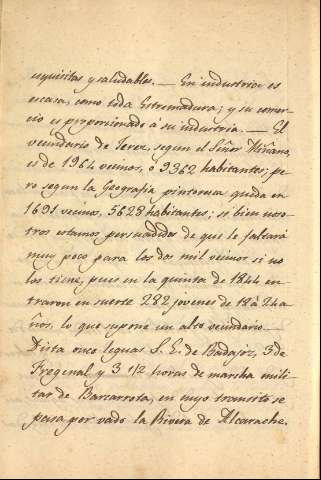 esquisitas y saludables. — En industria es
escasa, como toda Estremadura; y su comer-
cio es proporcionado á su industria. — El
vecindario de Jerez, segun el Señor Miñano,
es de 1964 vecinos, ó 9362 habitantes; pe-
ro segun la Geografia pintoresca queda en
1691 vecinos, 5628 habitantes; si bien noso-
tros estamos persuadidos de que le faltará
muy poco para los dos mil vecinos si no
los tiene, pues en la quinta de 1844 en-
traron en suerte 282 jovenes de 18 á 24 a-
ños, lo que supone un alto vecindario. —
Dista once leguas S. E. de Badajoz, 3 de
Fregenal y 3 1/2 horas de marcha mili-
tar de Barcarrota, en cuyo transito se
pasa por vado la Rivera de Alcarrache.